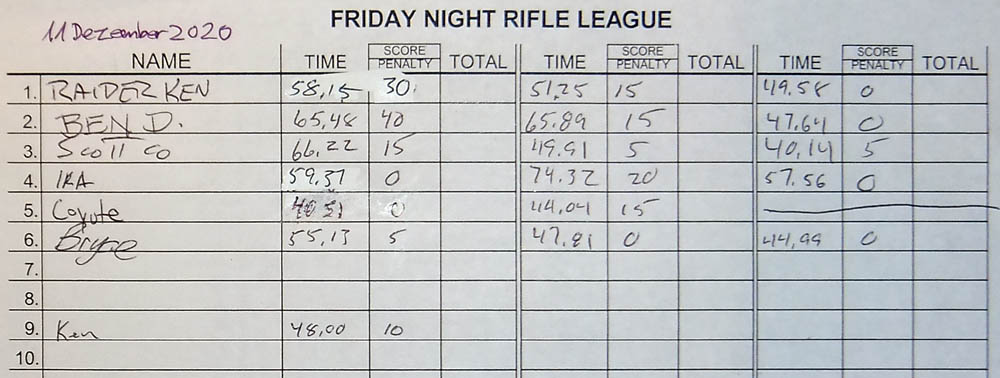 FRIDAY NIGHT RIFLE LEAGUE
11 Dezember 2020
NAME TIME SCORE PENALTY TOTAL TIME SCORE PENALTY TOTAL TIME SCORE PENALTY TOTAL
1. RAIDER KEN 58,15 30 51,25 15 49.58 0
2. BEN D. 65,48 40 65.89 15 47.64 0
3. Scott Co 66,22 15 49.91 5 40,14 5
4. IRA 59,37 0 74.32 20 57.56 0
5. Coyote 0 44,04 15
6. Bryce 55,13 5 47,81 0 44,99 0
7.
8.
9. Ken 48,00 10
10.